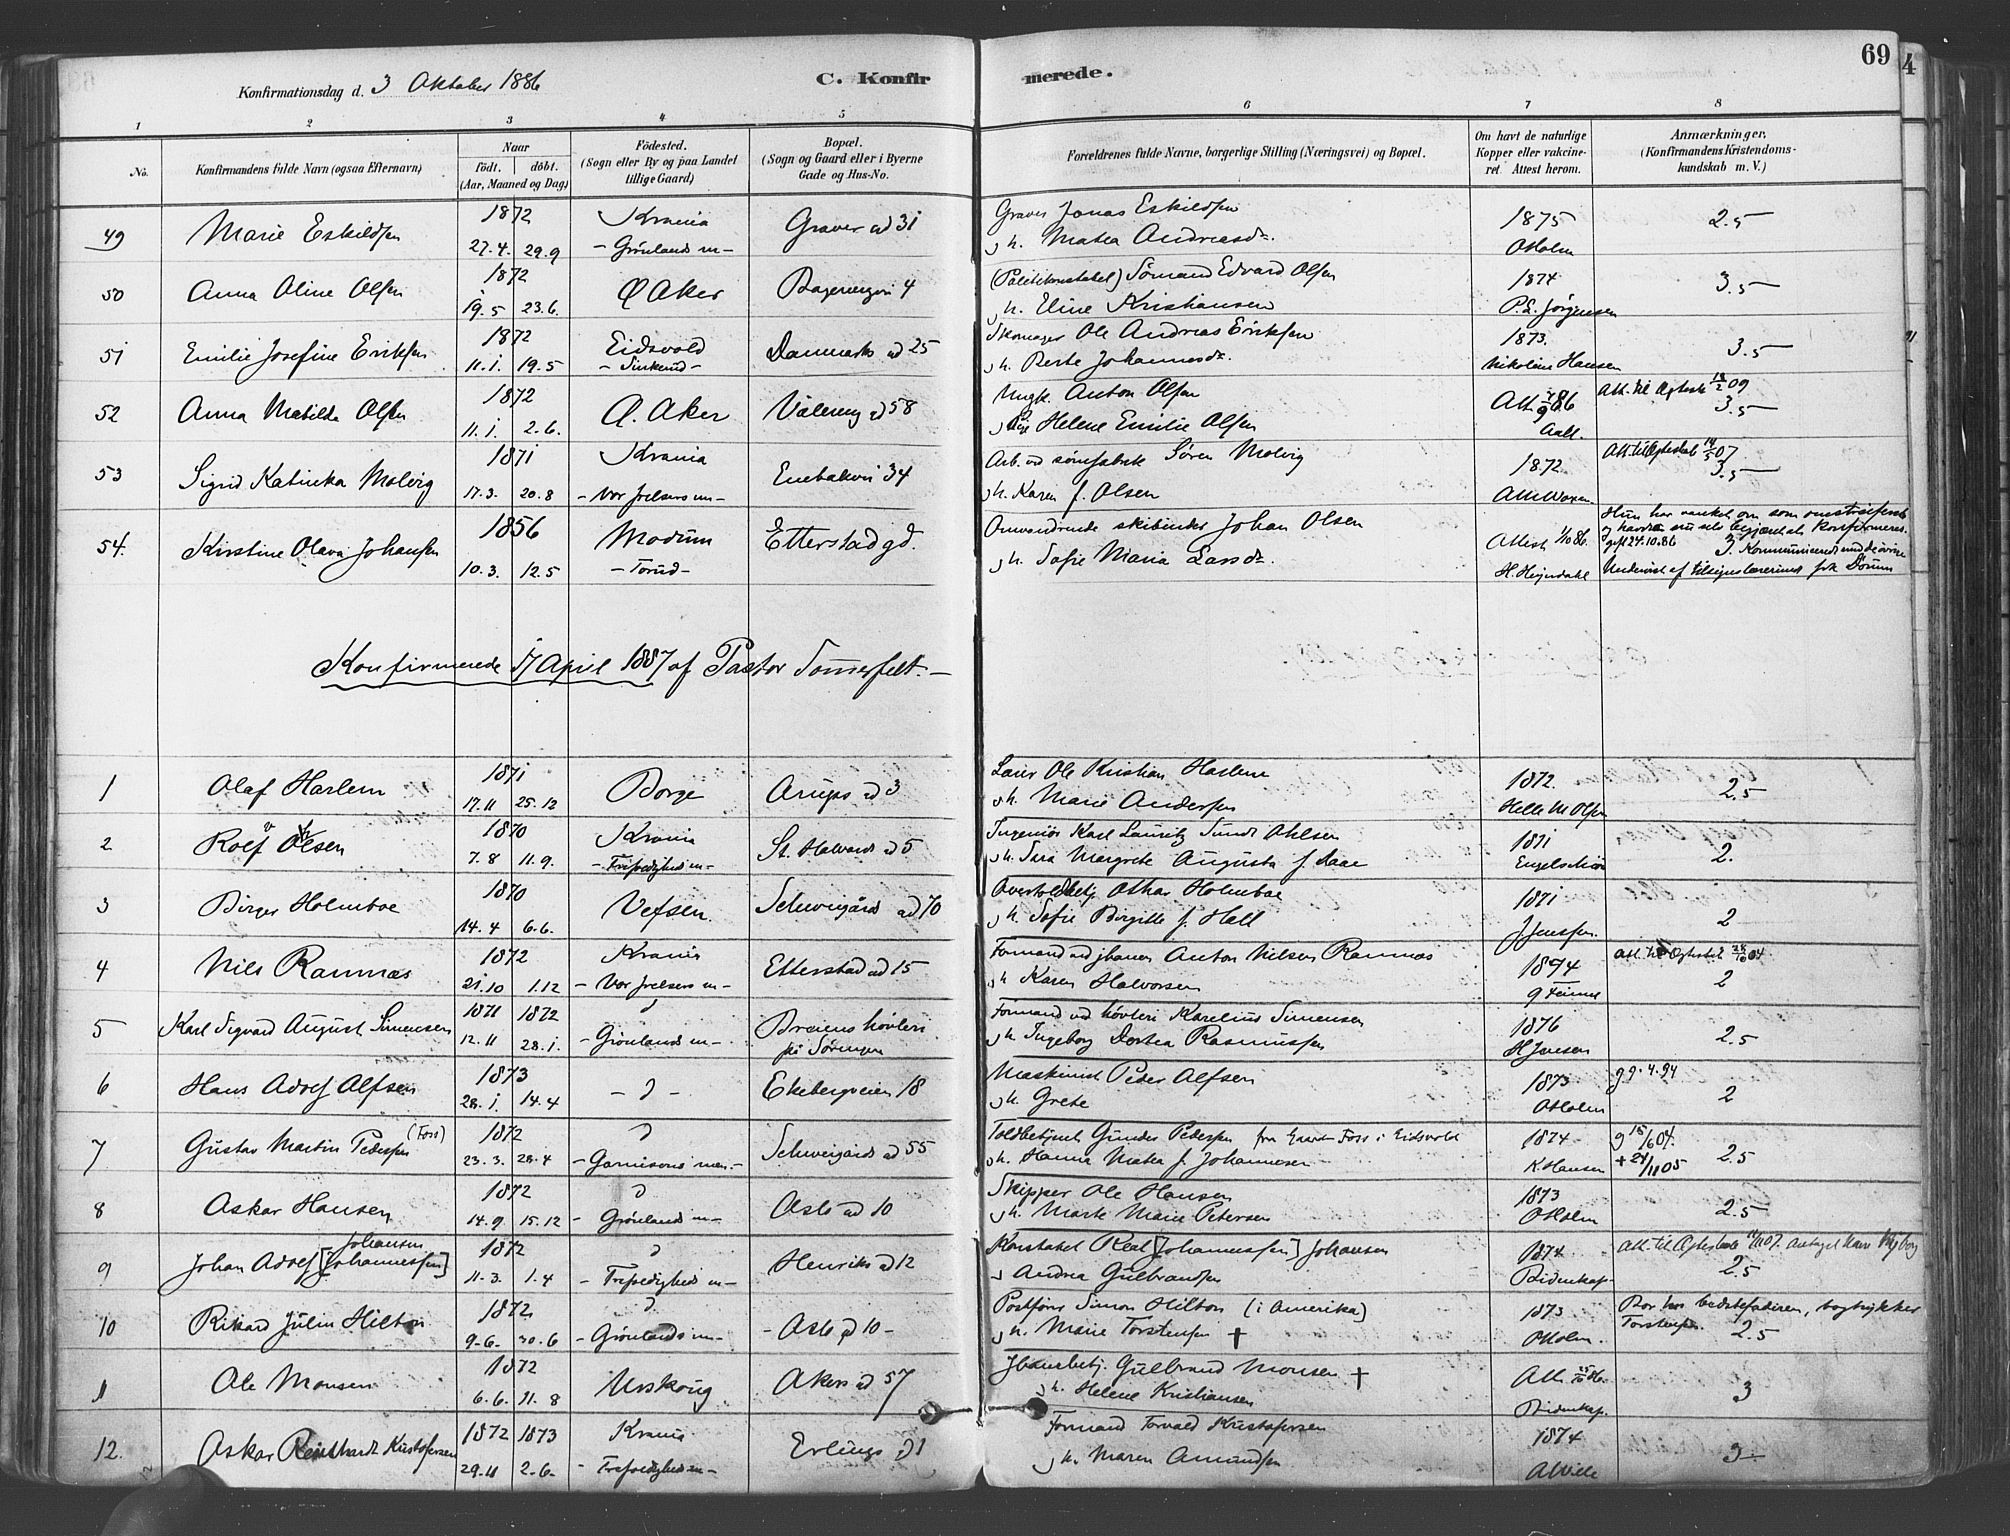 69
4
Konfirmationsdag d. 3 Oktober 1886
C. Konfirmerede.
1 2 3 4 5 6 7 8
No.
Konfirmandens fulde Navn (ogsaa Efternavn)
Naar
födt. döbt.
(Aar, Maaned og Dag)
Födested.
(Sogn eller By og paa Landet
tillige Gaard.)
Bopæl.
(Sogn og Gaard eller i Byerne
Gade og Hus-No.
Forældrenes fulde Navne, borgerlige Stilling (Næringsvei) og Bopæl.
Om havt de naturlige
Kopper eller vakcine-
ret. Attest herom.
Anmærkninger.
(Konfirmandens Kristendoms-
kundskab m. V.)
49 Marie Eskildsen 1872 27.4. 29.9 Krania - Grönlands m - Graver ad 31 Graver Jonas Eskildsen
h. Matea Andreasdr. 1875 OHolm 2.5
50 Anna Oline Olsen 1872 19.5 23.6. Ø Aker 4 (Politikonstabel) Sömand Edvard Olsen
h. Eline Kristiansen 1874 P.L. Jörgensen 3.5
51 Emilie Josefine Eriksen 1872 11.1. 19.5 Eidsvold Danmarks ad 25 Skomager Ole Andreas Eriksen
h. Berte Johannesdr. 1873. Nikoline Hansen 3.5
52 Anna Matilde Olsen 1872 11.1. 2.6. Ø. Aker Välereng ad 58 Ungk. Anton Olsen
Pige Helene Emilie Olsen Att. 86 Att. til Ægtesk. 13/2 09
3.5
53 Sigrid Katinka Molvig 1871 17.3. 20.8 Krania - Vor frelsers m - Enebakvei 34 Arb. ved sömfabrik Sören Molvig
h. Karen f. Olsen 1872. Att. til Ægtesk. 14/5 07
3.5
54. Kirstine Olava Johansen 1856 10.3. 12.5 Modum - Torud - Etterstad gd. Omvandrende skibinder Johan Olsen
h. Sofie Maria Larsdr. Attest 1/10 86. H. Heyerdahl Hun har vanket om som omstreiferske
og havde nu selv begjært at konfirmeres.
gift 24.10.86 3. Kommunicerede med de övrige
Undervist af tilsynslærerinde frk Dorum
Konfirmerede 17 April 1887 af Pastor Somerfelt. -
1 Olaf Harlem 1871 17.11 25.12 Borge Arups ad 3 Lærer Ole Kristian Harlem
h. Marie Andersen 1872. Helle M Olsen 2.5
2 Rolf Olsen 1870 7.8 11.9. Krania - Trefoldigheds m - St. Halvards ad 5 Ingeniör Karl Lauritz Sundt Ohlsen
h. Sara Margrete Augusta f. Aaae 1871 Engelschiön 2.
3 Birger Holmboe 1870 14.4 6.6. Vefsen Schweigårds ad 70 Overtoldbetj Othar Holmboe
h. Sofie Birgitte f. Hall 1871 J. Jenssen. 2
4 Nils Ramnæs 1872 21.10 1.12 Krania - Vor frelsers m - Etterstad ad 15 Formand ved jbanen Anton Nilsen Ramnæs
h Karen Halvorsen 1874 Att. til Ægtesk. 04
2
5 Karl Sigvard August Simensen 1871 1872 12.11 28.1. d - Grönlands m - Breiens hövleri
på Sörengen Formand ved hövleri Karelius Simensen
h. Ingeborg Dortea Rasmussen 1876 H Jensen 2.5
6 Hans Adolf Alfsen 1873 28.1. 14.4 - d - Ekebergveien 18 Maskinist Peder Alfsen
h. Grete 1873 OHolm g 9.4.94
2
7 Gustav Martin Pedersen (Foss) 1872 23.3. 28.4 d - Garnisons men. - Schweigårds ad 55 Toldbetjent Gunder Pedersen fra Foss i Eidsvold
h. Hanna Matea f. Johannesen 1874 K. Hansen g 15/6 04.
+ 24/11 05 2.5
8 Oskar Hansen 1872 14.9. 15.12 d - Grönlands m - Oslo ad 10 Skipper Ole Hansen
h. Marte Marie Petersen 1873 OHolm 2.5
9 Johan Adolf [Johannessen] Johansen 1872 11.3. 1.4 d - Trefoldigheds m - Henriks ad 12 Konstabel Real [Johannessen] Johansen
Andrea Gulbrandsen 1874 Bidenkap. Att. til Ægtesk. 07. Antaget Navn Nyborg
2.5
10 Rikard Julin Hilton 1872 9.6. 30.6 d. - Grönlands m - - Oslo ad 10 - Postförer Simon Hilton (i Amerika)
h. Marie Torstensen + 1873 OHolm. Bor hos bedstefaderen, bogtrykker
Torstensen. 2.5
11 Ole Monsen 1872 6.6. 11.8 Urskoug Akers ad 57 Jbanebetj. Gulbrand Monsen +
h. Helene Kristiansen Att. 86. Bidenkap. 3
12. Oskar Reinthardt Kristofersen 1872 1873 29.11 2.6. Krania - Trefoldigheds m - Erlings d 1 Formand Torvald Kristofersen
h. Maren Amundsen 1874 AWille 3